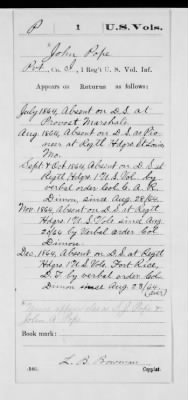 P | 1 | U.S. Vols.
John Pope
Pvt., Co. I, 1 Reg't U. S. Vol. Inf.
Appears on
Returns as follows:
July 1864, Absent on D.S. at
Provost Marshals
Aug. 1864, Absent on D.S. as
at Regtl Hdqrs St Louis
Mo.
Sept & Oct 1864, Absent on D.S. at
Regtl Hdqrs 1 U.S. Vol. by
verbal order Col. C. A. R.
Dimon, since Aug 28/64.
Nov. 1864, Absent on D.S. at Regtl
Hdqrs. 1 U.S. Vols. since Aug
20/64 by Verbal order Col.
Dimon
Dec. 1864, Absent on D.S. at Regtl
Hdqrs 1 U.S. Vols. Fort Rice,
D.T. by verbal order Col.
Dimon since Aug 28/64.
(over)
Name appears also as
John A. Pope
Book mark:
L. B. Bowman
(546)
Copyist.